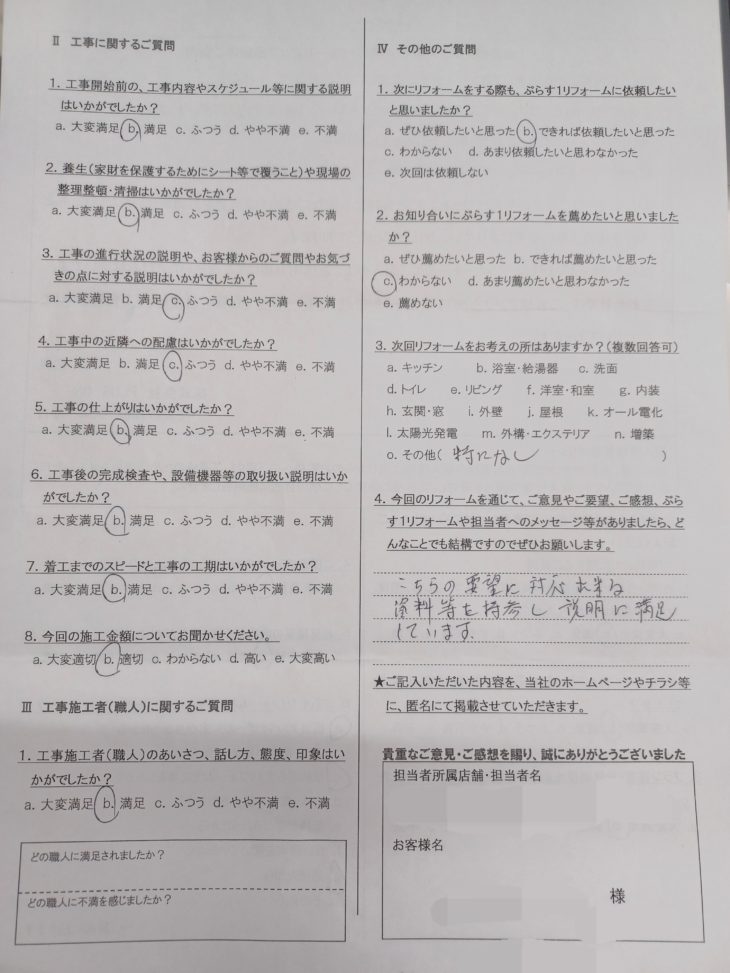 Ⅱ 工事に関するご質問
1. 工事開始前の、工事内容やスケジュール等に関する説明
はいかがでしたか？
a. 大変満足 b. 満足 c. ふつう d. やや不満 e. 不満
2. 養生(家財を保護するためにシート等で覆うこと)や現場の
整理整頓・清掃はいかがでしたか？
a. 大変満足 b. 満足 c. ふつう d. やや不満 e. 不満
3. 工事の進行状況の説明や、お客様からのご質問やお気づ
きの点に対する説明はいかがでしたか？
a. 大変満足 b. 満足 c. ふつう d. やや不満 e. 不満
4. 工事中の近隣への配慮はいかがでしたか？
a. 大変満足 b. 満足 c. ふつう d. やや不満 e. 不満
5. 工事の仕上がりはいかがでしたか？
a. 大変満足 b. 満足 c. ふつう d. やや不満 e. 不満
6. 工事後の完成検査や、設備機器等の取り扱い説明はいか
がでしたか？
a. 大変満足 b. 満足 c. ふつう d. やや不満 e. 不満
7. 着工までのスピードと工事の工期はいかがでしたか？
a. 大変満足 b. 満足 c. ふつう d. やや不満 e. 不満
8. 今回の施工金額についてお聞かせください。
a. 大変適切 b. 適切 c. わからない d. 高い e. 大変高い
Ⅲ 工事施工者(職人)に関するご質問
1. 工事施工者(職人)のあいさつ、話し方、態度、印象はい
かがでしたか？
a. 大変満足 b. 満足 c. ふつう d. やや不満 e. 不満
どの職人に満足されましたか？
どの職人に不満を感じましたか？
Ⅳ その他のご質問
1. 次にリフォームをする際も、ぷらす1リフォームに依頼したい
と思いましたか？
a. ぜひ依頼したいと思った b. できれば依頼したいと思った
c. わからない d. あまり依頼したいと思わなかった
e. 次回は依頼しない
2. お知り合いにぷらす1リフォームを薦めたいと思いました
か？
a. ぜひ薦めたいと思った b. できれば薦めたいと思った
c. わからない d. あまり薦めたいと思わなかった
e. 薦めない
3. 次回リフォームをお考えの所はありますか？(複数回答可)
a. キッチン b. 浴室・給湯器 c. 洗面
d. トイレ e. リビング f. 洋室・和室 g. 内装
h. 玄関・窓 i. 外壁 j. 屋根 k. オール電化
l. 太陽光発電 m. 外構・エクステリア n. 増築
o. その他( 特になし )
4. 今回のリフォームを通じて、ご意見やご要望、ご感想、ぷら
す1リフォームや担当者へのメッセージ等がありましたら、ど
んなことでも結構ですのでぜひお願いします。
こちらの要望に対応出来る
資料等を持参し説明に満足
しています.
★ご記入いただいた内容を、当社のホームページやチラシ等
に、匿名にて掲載させていただきます。
貴重なご意見・ご感想を賜り、誠にありがとうございました
担当者所属店舗・担当者名
お客様名
様